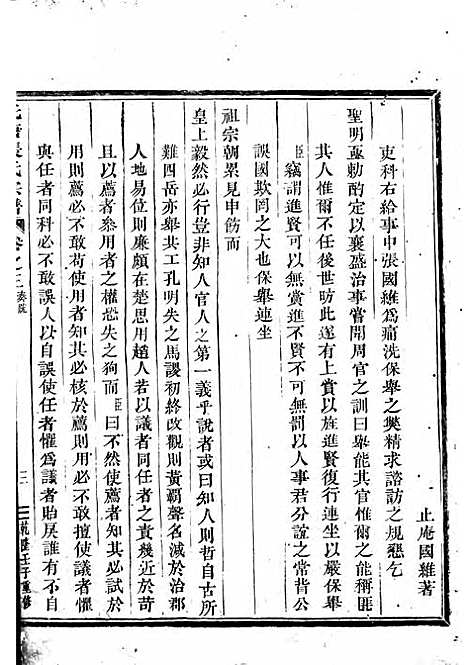 止庵國維著
吏科右給事中張國維爲痛洗保舉之獘精求諮訪之規懇乞
聖明亟勅酌定以襄盛治事嘗聞周官之訓曰舉能其官惟爾之能稱匪
其人惟爾不任後世昉此有上賞以旌進賢復行連坐以嚴保舉
臣竊謂進賢可以無賞進不賢不可無罰以人事君分誼之常背公
誤國欺罔之大也保舉連坐
祖宗朝累見申飭而
皇上毅然必行豈非知人官人之第一義乎說者或曰知人則哲自古所
難四岳亦舉共工孔明失之馬謖初終改觀則黃覇聲名減於治郡
人地易位則廉頗在楚思用趙人若以議者同任者之責幾近於苛
且以薦者叅用者之權恐失之狥而臣曰不然使薦者知其必試於
用則薦必不敢苟使用者知其必核於薦則用必不敢擅使議者懼
與任者同科必不敢誤人以自誤使任者懼爲議者貽戾誰有不自
張氏宗譜
卷之三
奏疏
三
壬子重修